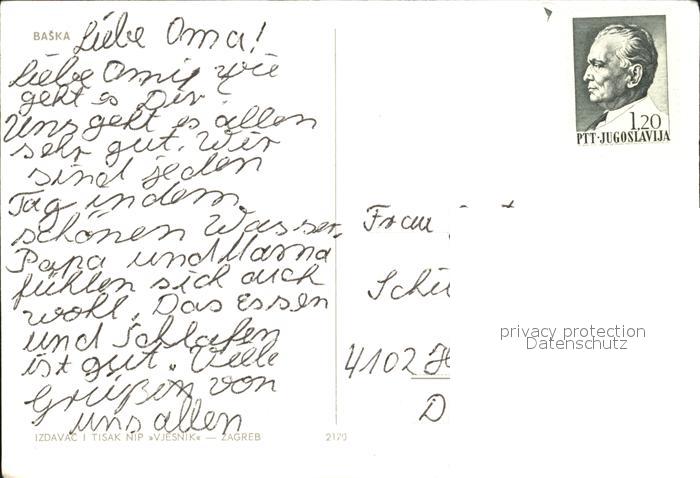 BAŠKA
Liebe Oma!
Liebe Omi, wie
geht es Dir?
Uns geht es allen
sehr gut. Wir
sind jeden
Tag in dem
schönen Wasser.
Papa und Mama
fühlen sich auch
wohl. Das Essen
und Schlafen
ist gut. Viele
Grüßen von
uns allen
IZDAVAČ I TISAK NIP »VJESNIK« — ZAGREB
2170
1.20
PTT·JUGOSLAVIJA
Frau
Schü
4102 H
D
privacy protection
Datenschutz